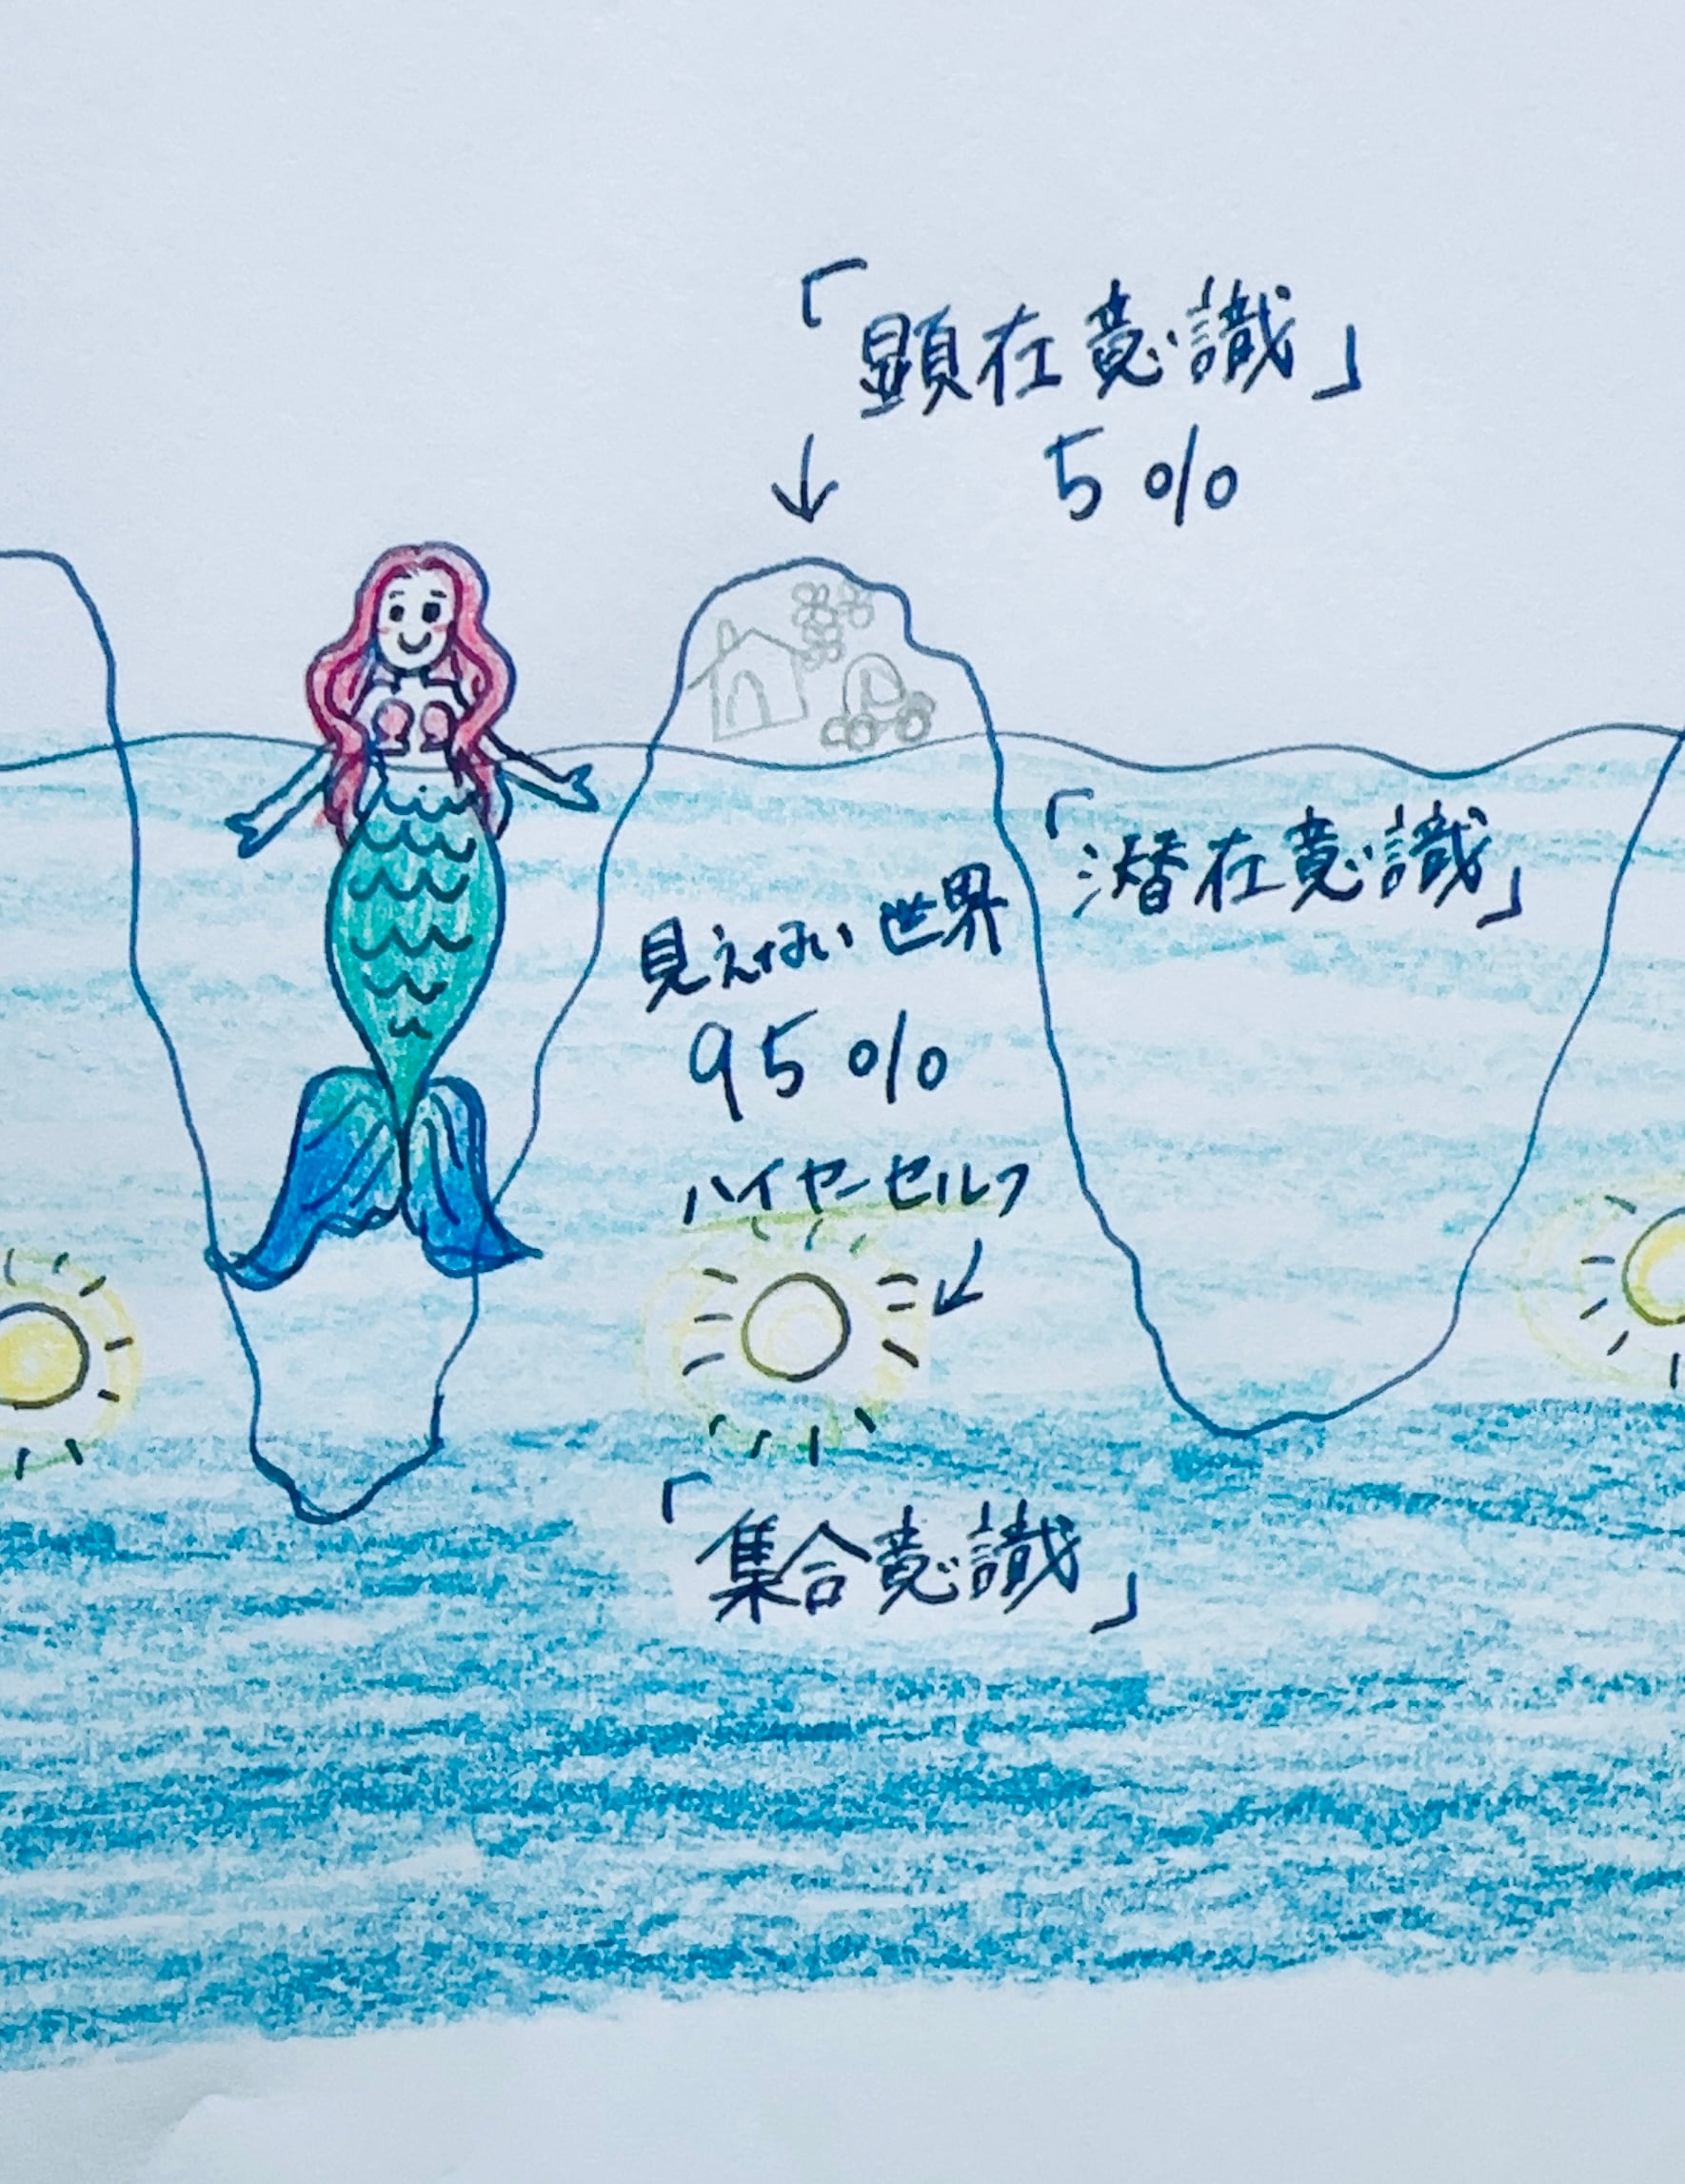 「顕在意識」
5%
「潜在意識」
見えない世界
95%
ハイヤーセルフ
「集合意識」